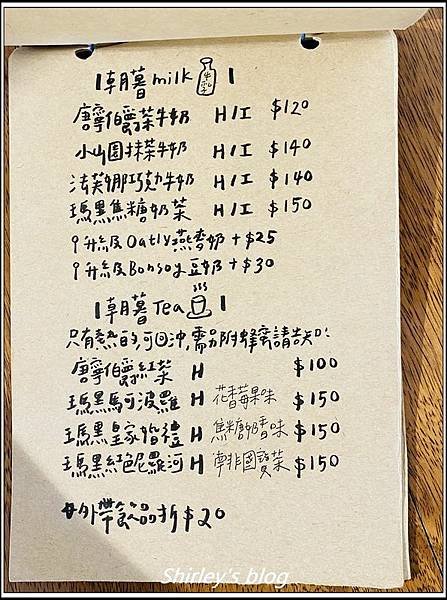 朝暮milk 牛奶
唐寧伯爵茶牛奶 H/I $120
小山園抹茶牛奶 H/I $140
法芙娜巧克力牛奶 H/I $140
瑪黑焦糖奶茶 H/I $150
升級Oatly燕麥奶+$25
升級Bonsoy豆奶+$30
朝暮Tea
只有熱的,可回沖,需另附蜂蜜請告知:
唐寧伯爵紅茶 H $100
瑪黑馬可波羅 H 花香莓果味 $150
瑪黑皇家婚禮 H 焦糖奶香味 $150
瑪黑紅色尼羅河 H 南非國寶茶 $150
外帶飲品折$20
Shirley's blog